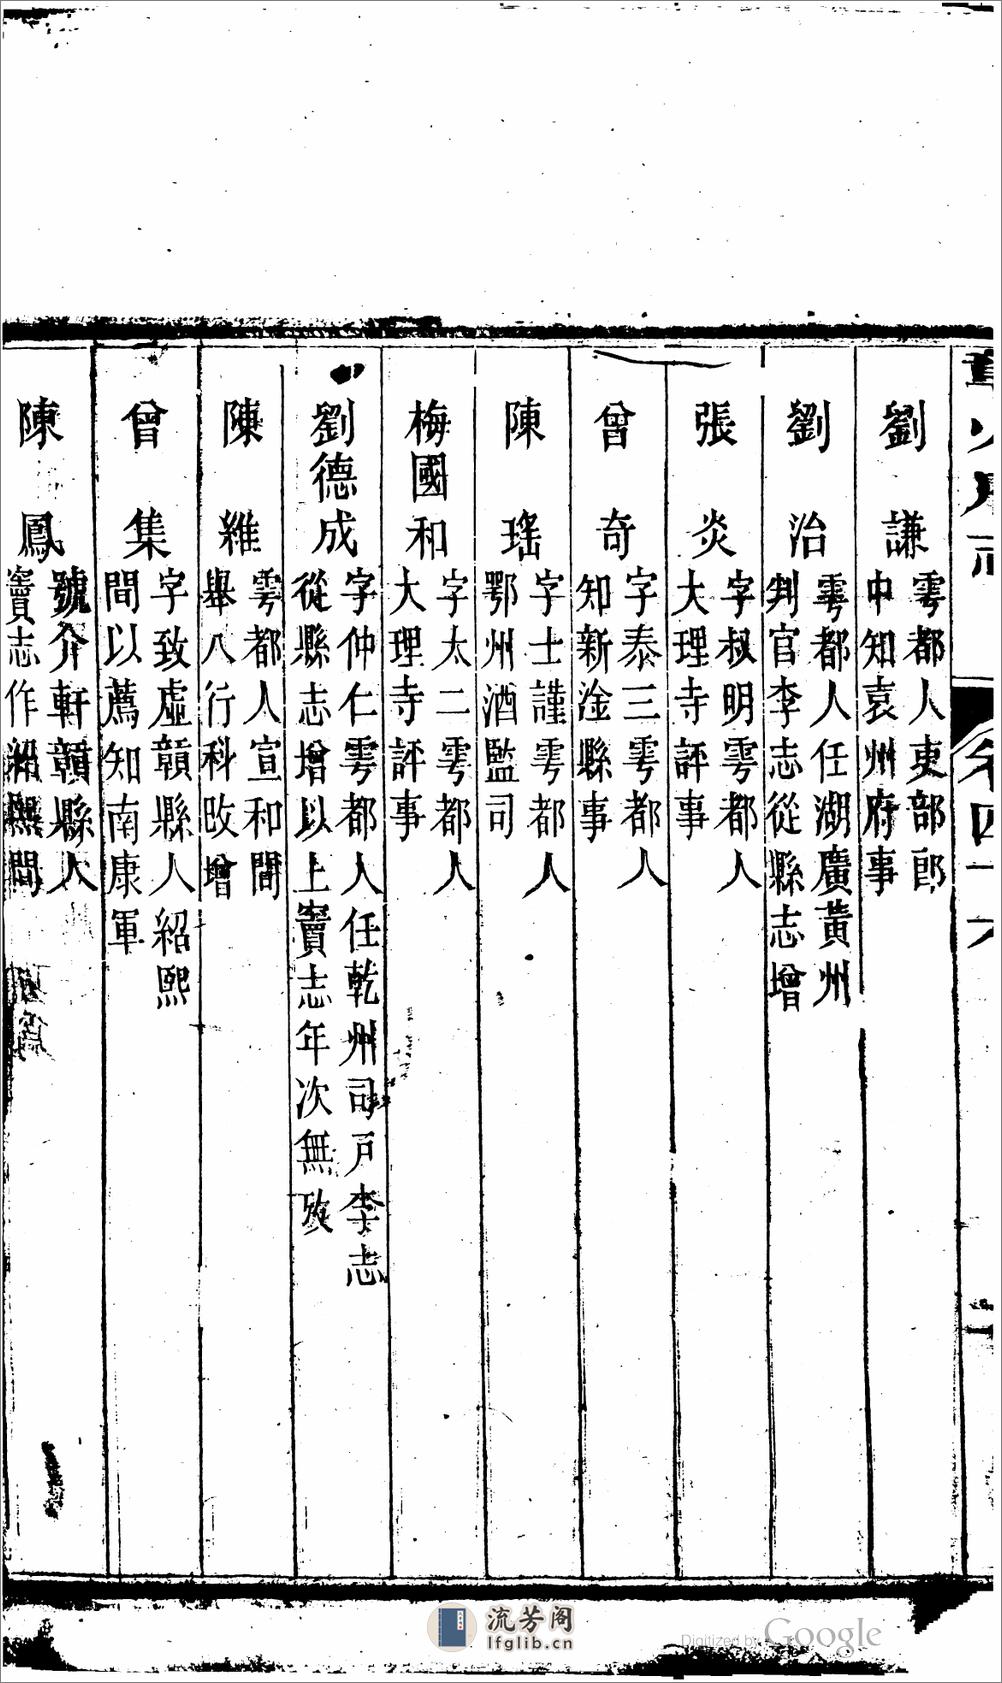 劉謙 雩都人吏部郎
中知袁州府事
劉治 雩都人任湖廣黃州
判官李志從縣志增
張炎 字叔明雩都人
大理寺評事
曾奇 字泰三雩都人
知新淦縣事
陳瑤 字士謹雩都人
鄂州酒監司
梅國和 字太二雩都人
大理寺評事
劉德成 字仲仁雩都人任乾州司戶李志
從縣志增以上竇志年次無攷
陳維 雩都人宣和間
舉八行科攺增
曾集 字致虛贛縣人紹熙
間以薦知南康軍
陳鳳 號介軒贛縣人
竇志作紹熙間
卷四十六
流芳阁
lfglib.cn
Digitized by Google